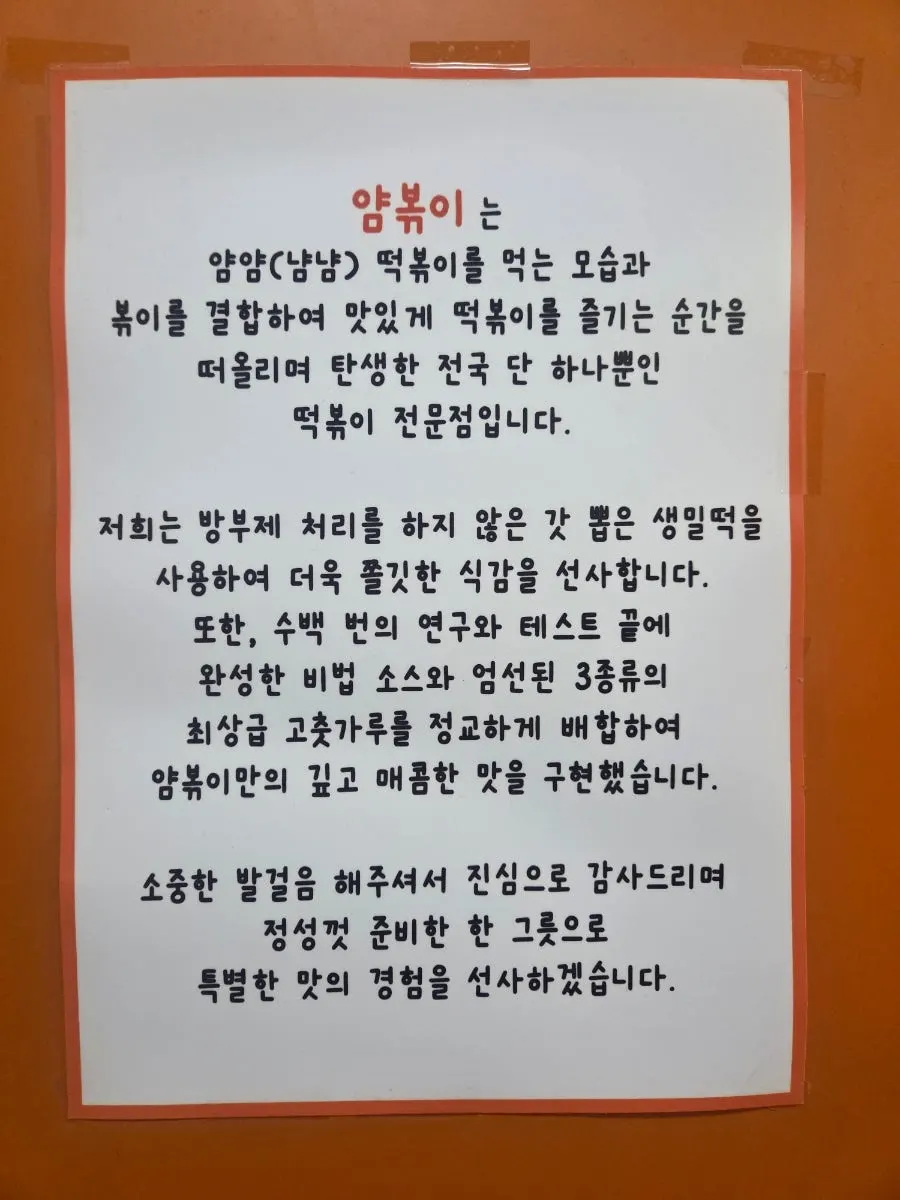 얌볶이 는
얌얌(냠냠) 떡볶이를 먹는 모습과
볶이를 결합하여 맛있게 떡볶이를 즐기는 순간을
떠올리며 탄생한 전국 단 하나뿐인
떡볶이 전문점입니다.
저희는 방부제 처리를 하지 않은 갓 뽑은 생밀떡을
사용하여 더욱 쫄깃한 식감을 선사합니다.
또한, 수백 번의 연구와 테스트 끝에
완성한 비법 소스와 엄선된 3종류의
최상급 고춧가루를 정교하게 배합하여
얌볶이만의 깊고 매콤한 맛을 구현했습니다.
소중한 발걸음 해주셔서 진심으로 감사드리며
정성껏 준비한 한 그릇으로
특별한 맛의 경험을 선사하겠습니다.